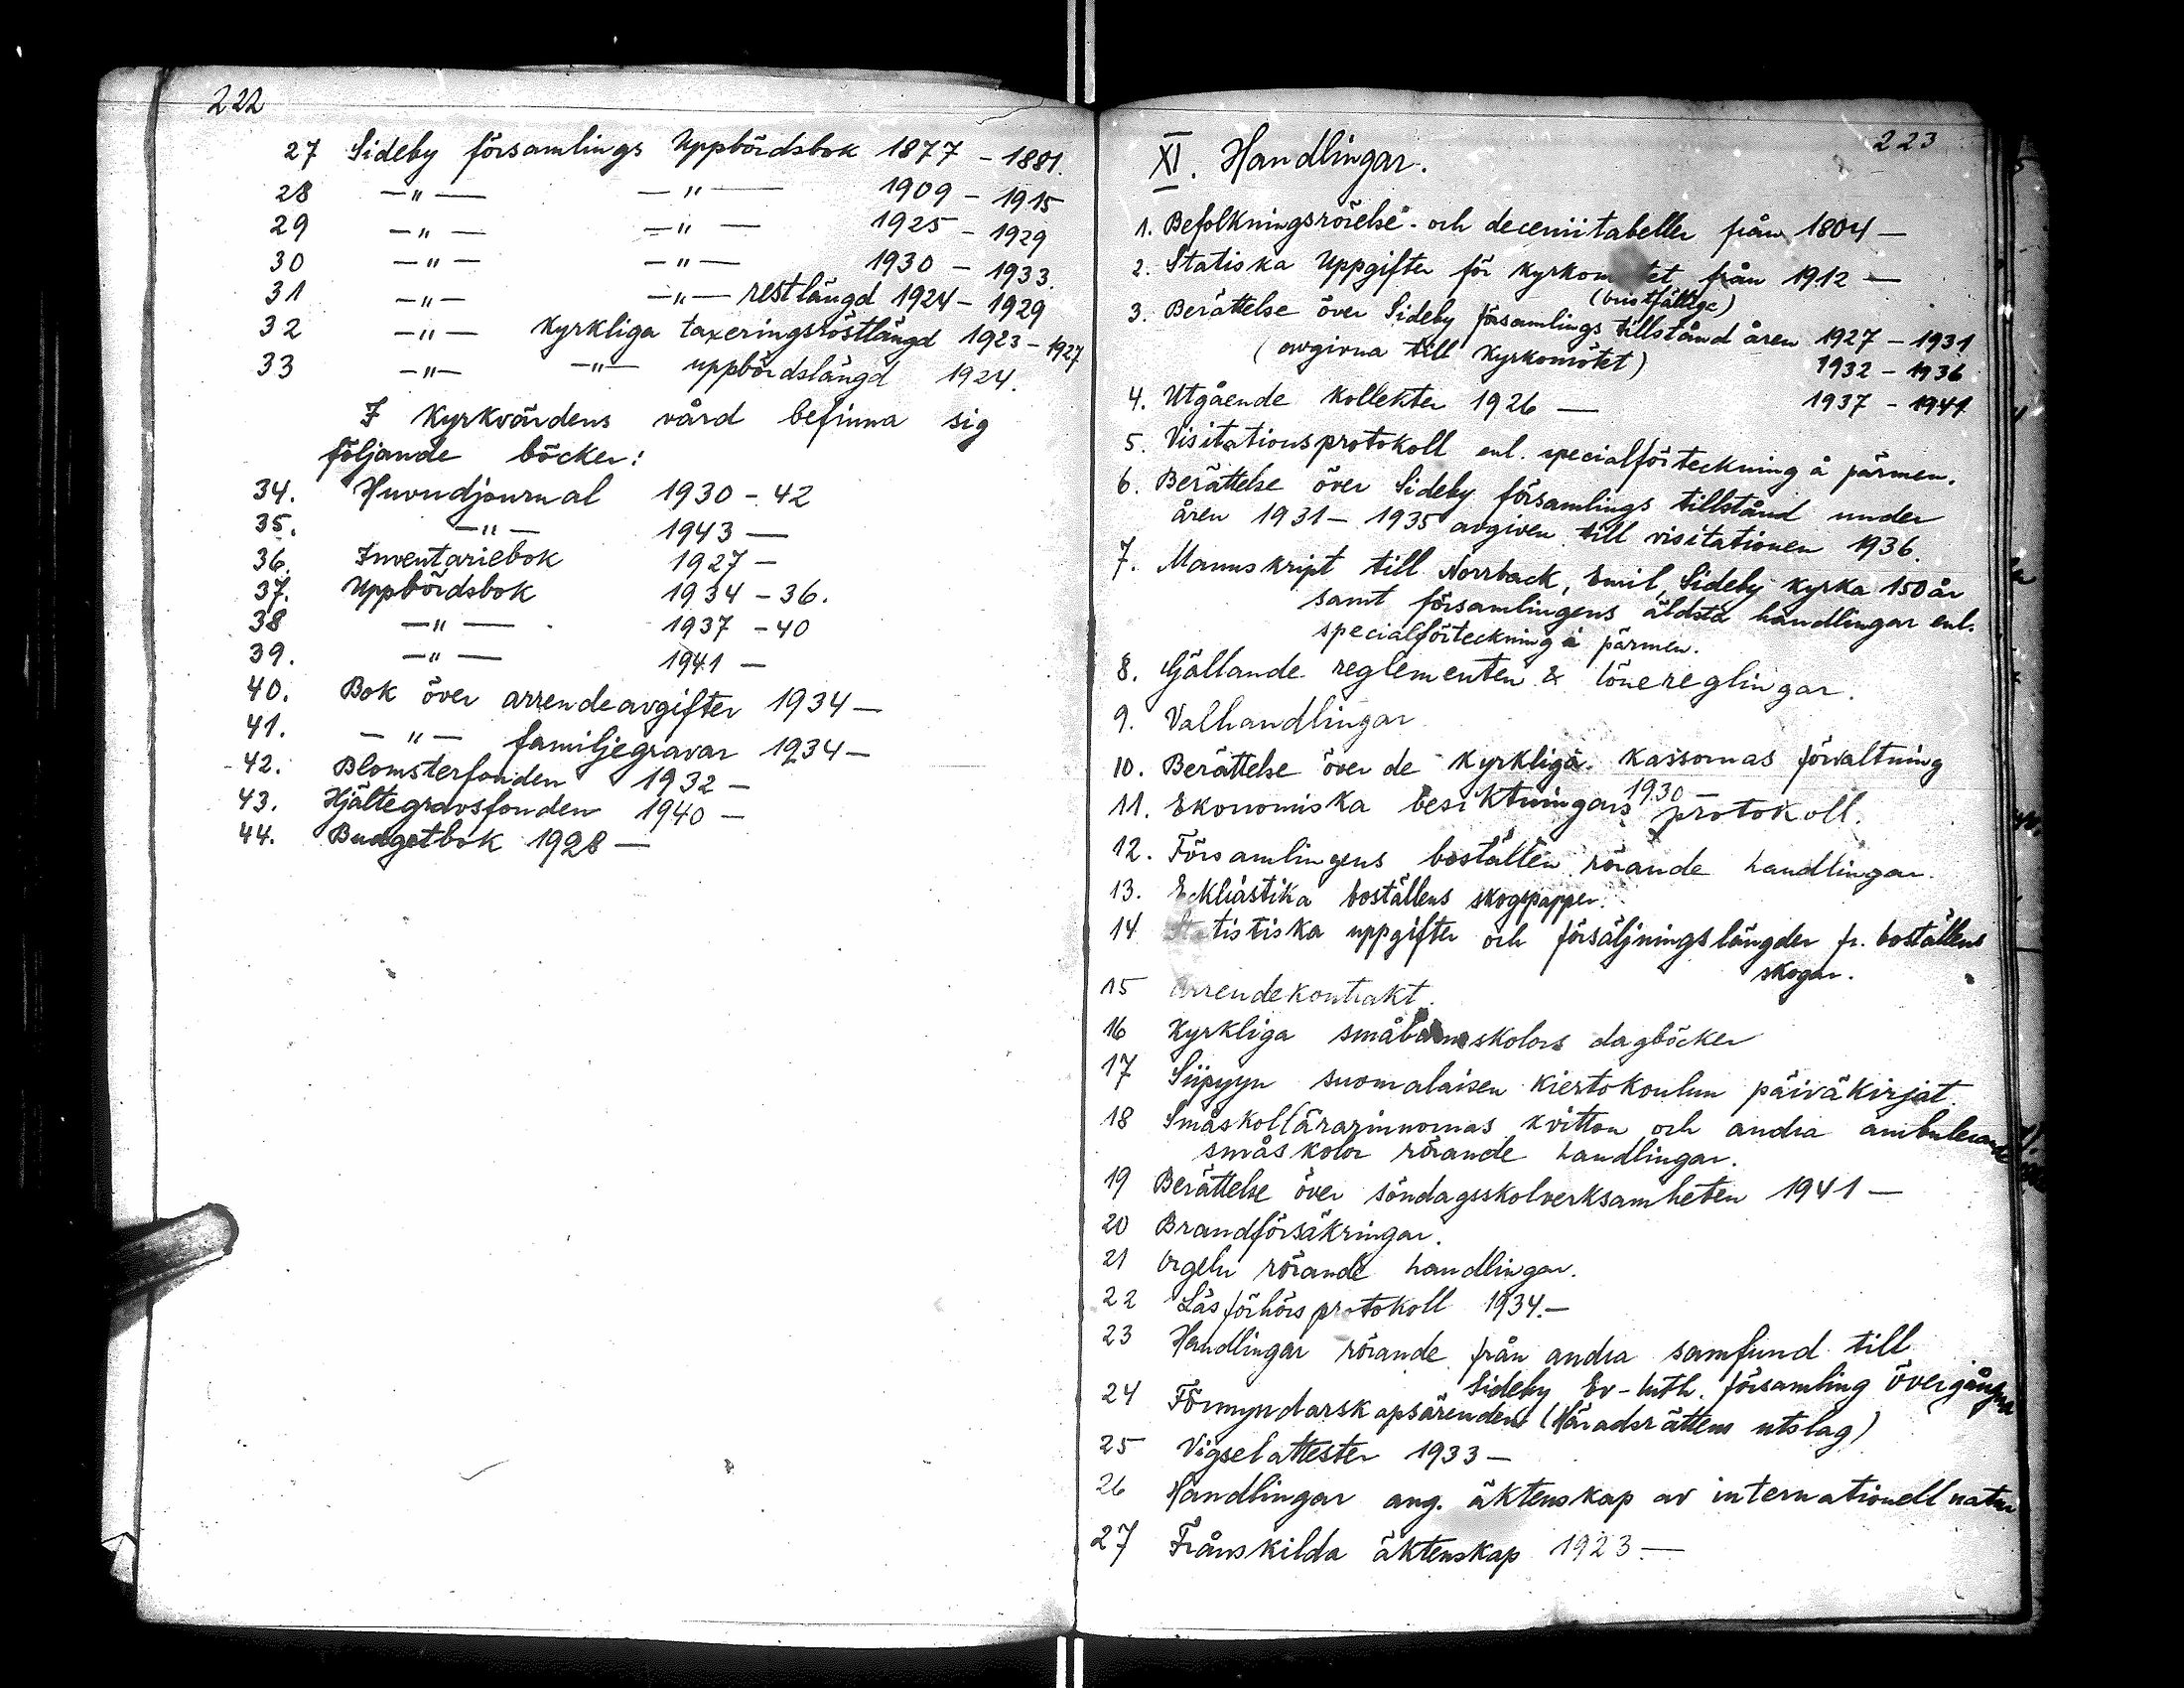 222
27 Sideby församlings Uppbördsbok 1877 - 1881.
28 -"- -"- 1909 - 1915
29 -"- -"- 1925 - 1929
30 -"- -"- 1930 - 1933.
31 -"- -"- restlängd 1924 - 1929
32 -"- Kyrkliga taxeringsröstlängd 1923 - 1927
33 -"- -"- uppbördslängd 1924.
I Kyrkvärdens vård befinna sig
följande böcker:
34. Huvudjournal 1930 - 42
35. -"- 1943 —
36. Inventariebok 1927 -
37. Uppbördsbok 1934 - 36.
38 -"- 1937 - 40
39. -"- 1941 —
40. Bok över arrendeavgifter 1934 —
41. -"- familjegravar 1934 —
42. Blomsterfonden 1932 —
43. Hjältegravsfonden 1940 —
44. Budgetbok 1928 —
223
XI. Handlingar.
1. Befolkningsrörelse- och deceniitabeller från 1804 —
2. Statiska Uppgifter för Kyrkomötet från 1912 —
(bristfälliga)
3. Berättelse över Sideby församlings tillstånd åren 1927 - 1931
(avgivna till Kyrkomötet) 1932 - 1936
4. Utgående kollekter 1926 — 1937 - 1941
5. Visitationsprotokoll enl. specialförteckning å pärmen.
6. Berättelse över Sideby församlings tillstånd under
åren 1931 - 1935 avgiven till visitationen 1936.
7. Manuskript till Norrback, Emil, Sideby kyrka 150 år
samt församlingens äldsta handlingar enl.
specialförteckning å pärmen.
8. Gällande reglementen & lönereglingar.
9. Valhandlingar
10. Berättelse över de Kyrkliga kassornas förvaltning
1930 —
11. Ekonomiska besiktningars protokoll.
12. Församlingens boställen rörande handlingar.
13. Eckliastika boställens skogspapper.
14 Statistiska uppgifter och försäljningslängder fr. boställens
skogar.
15 Arrendekontrakt.
16 Kyrkliga småbarnsskolors dagböcker
17 Siipyyn suomalaisen kiertokoulun päiväkirjat.
18 Småskollärarinnornas kvitton och andra ambulerande
småskolor rörande handlingar.
19 Berättelse över söndagsskolverksamheten 1941 —
20 Brandförsäkringar.
21 Orgeln rörande handlingar.
22 Läsförhörsprotokoll 1934. —
23 Handlingar rörande från andra samfund till
Sideby Ev-luth. församling övergångna
24 Förmyndarskapsärenden (Häradsrättens utslag)
25 Vigselattester 1933 —
26 Handlingar ang. äktenskap av internationell natur
27 Frånskilda äktenskap 1923 —